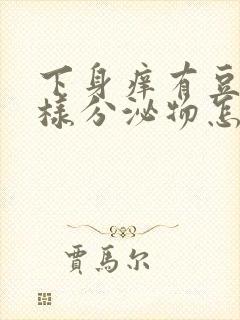 下身痒有豆
样分泌物怎
贾马尔